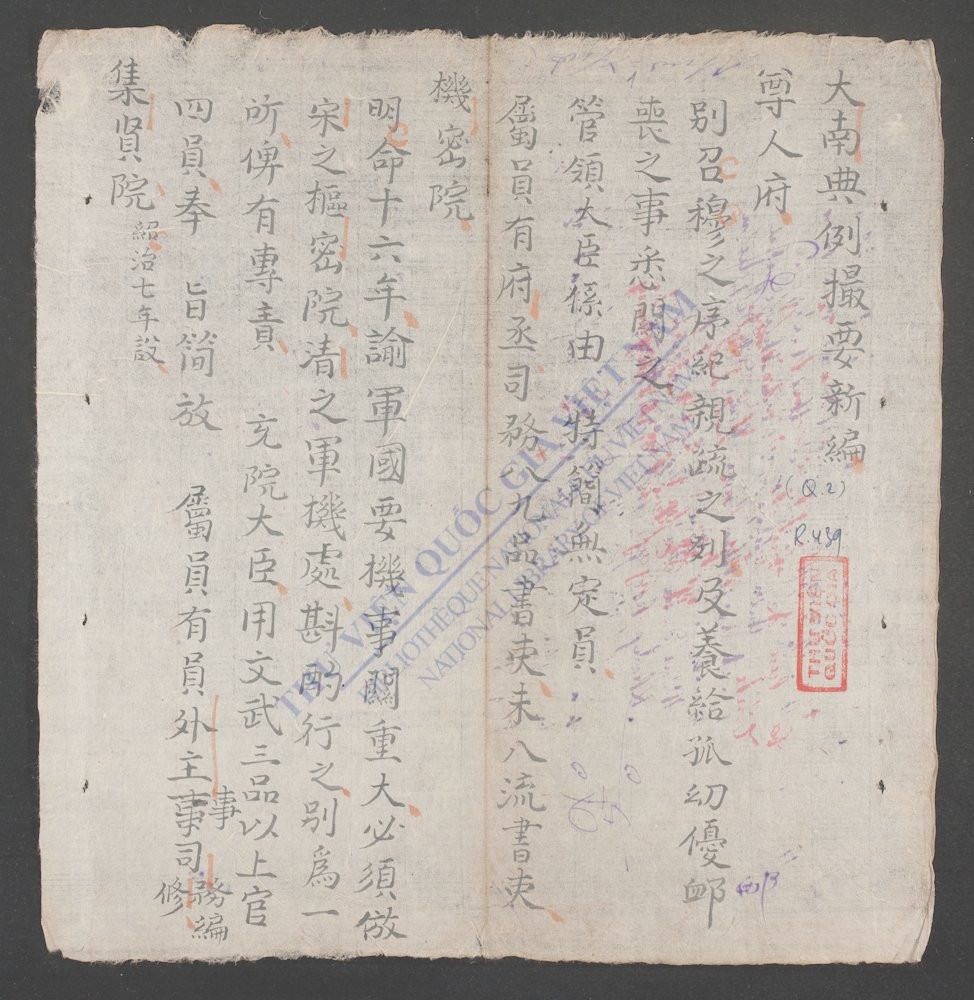 大南典例撮要新編
(Q.2)
R.439
THƯ VIỆN
QUỐC GIA
尊人府
別召穆之序紀親疏之列及養給孤幼優卹
喪之事悉關之
管領大臣係由　特簡無定員
屬員有府丞司務八九品書吏未入流書吏
機密院
明命十六年諭軍國要機事關重大必須倣
宋之樞密院清之軍機處斟酌行之別爲一
所俾有專責　充院大臣用文武三品以上官
四員奉　旨簡放　屬員有員外主事司務編
修
事
集賢院 紹治七年設
THƯ VIỆN QUỐC GIA VIỆT NAM
BIBLIOTHÈQUE NATIONALE DU VIETNAM
NATIONAL LIBRARY OF VIETNAM